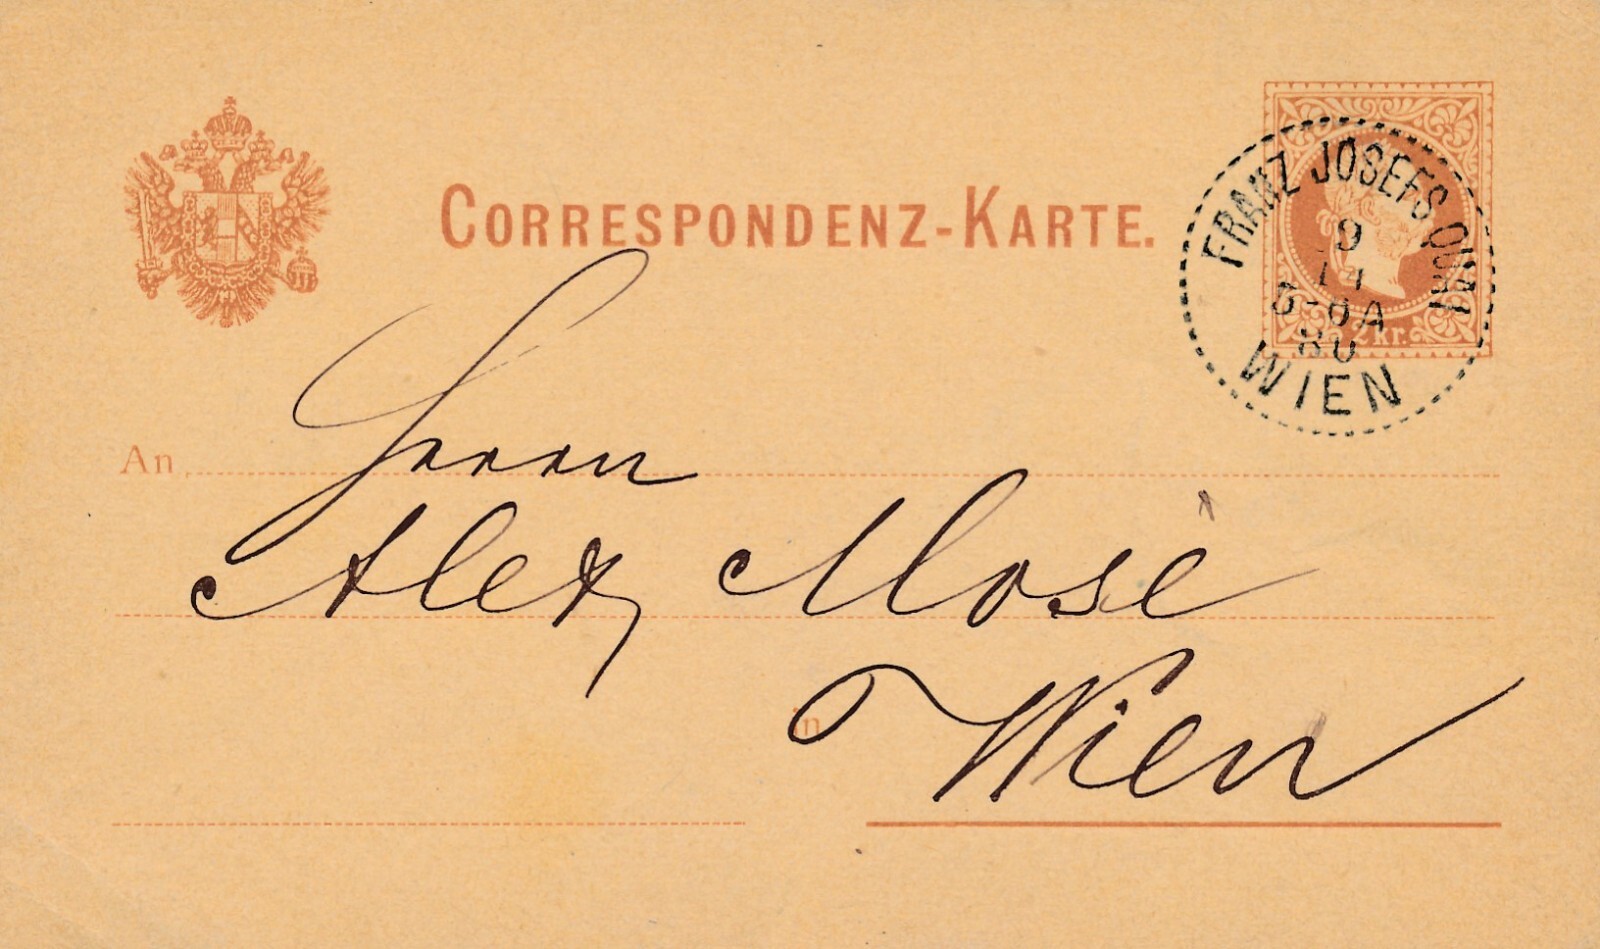 CORRESPONDENZ-KARTE.
FRANZ JOSEFS QUAI
9
5-6A
80
WIEN
2 kr.
An
Herrn
Alex Mosè
in
Wien